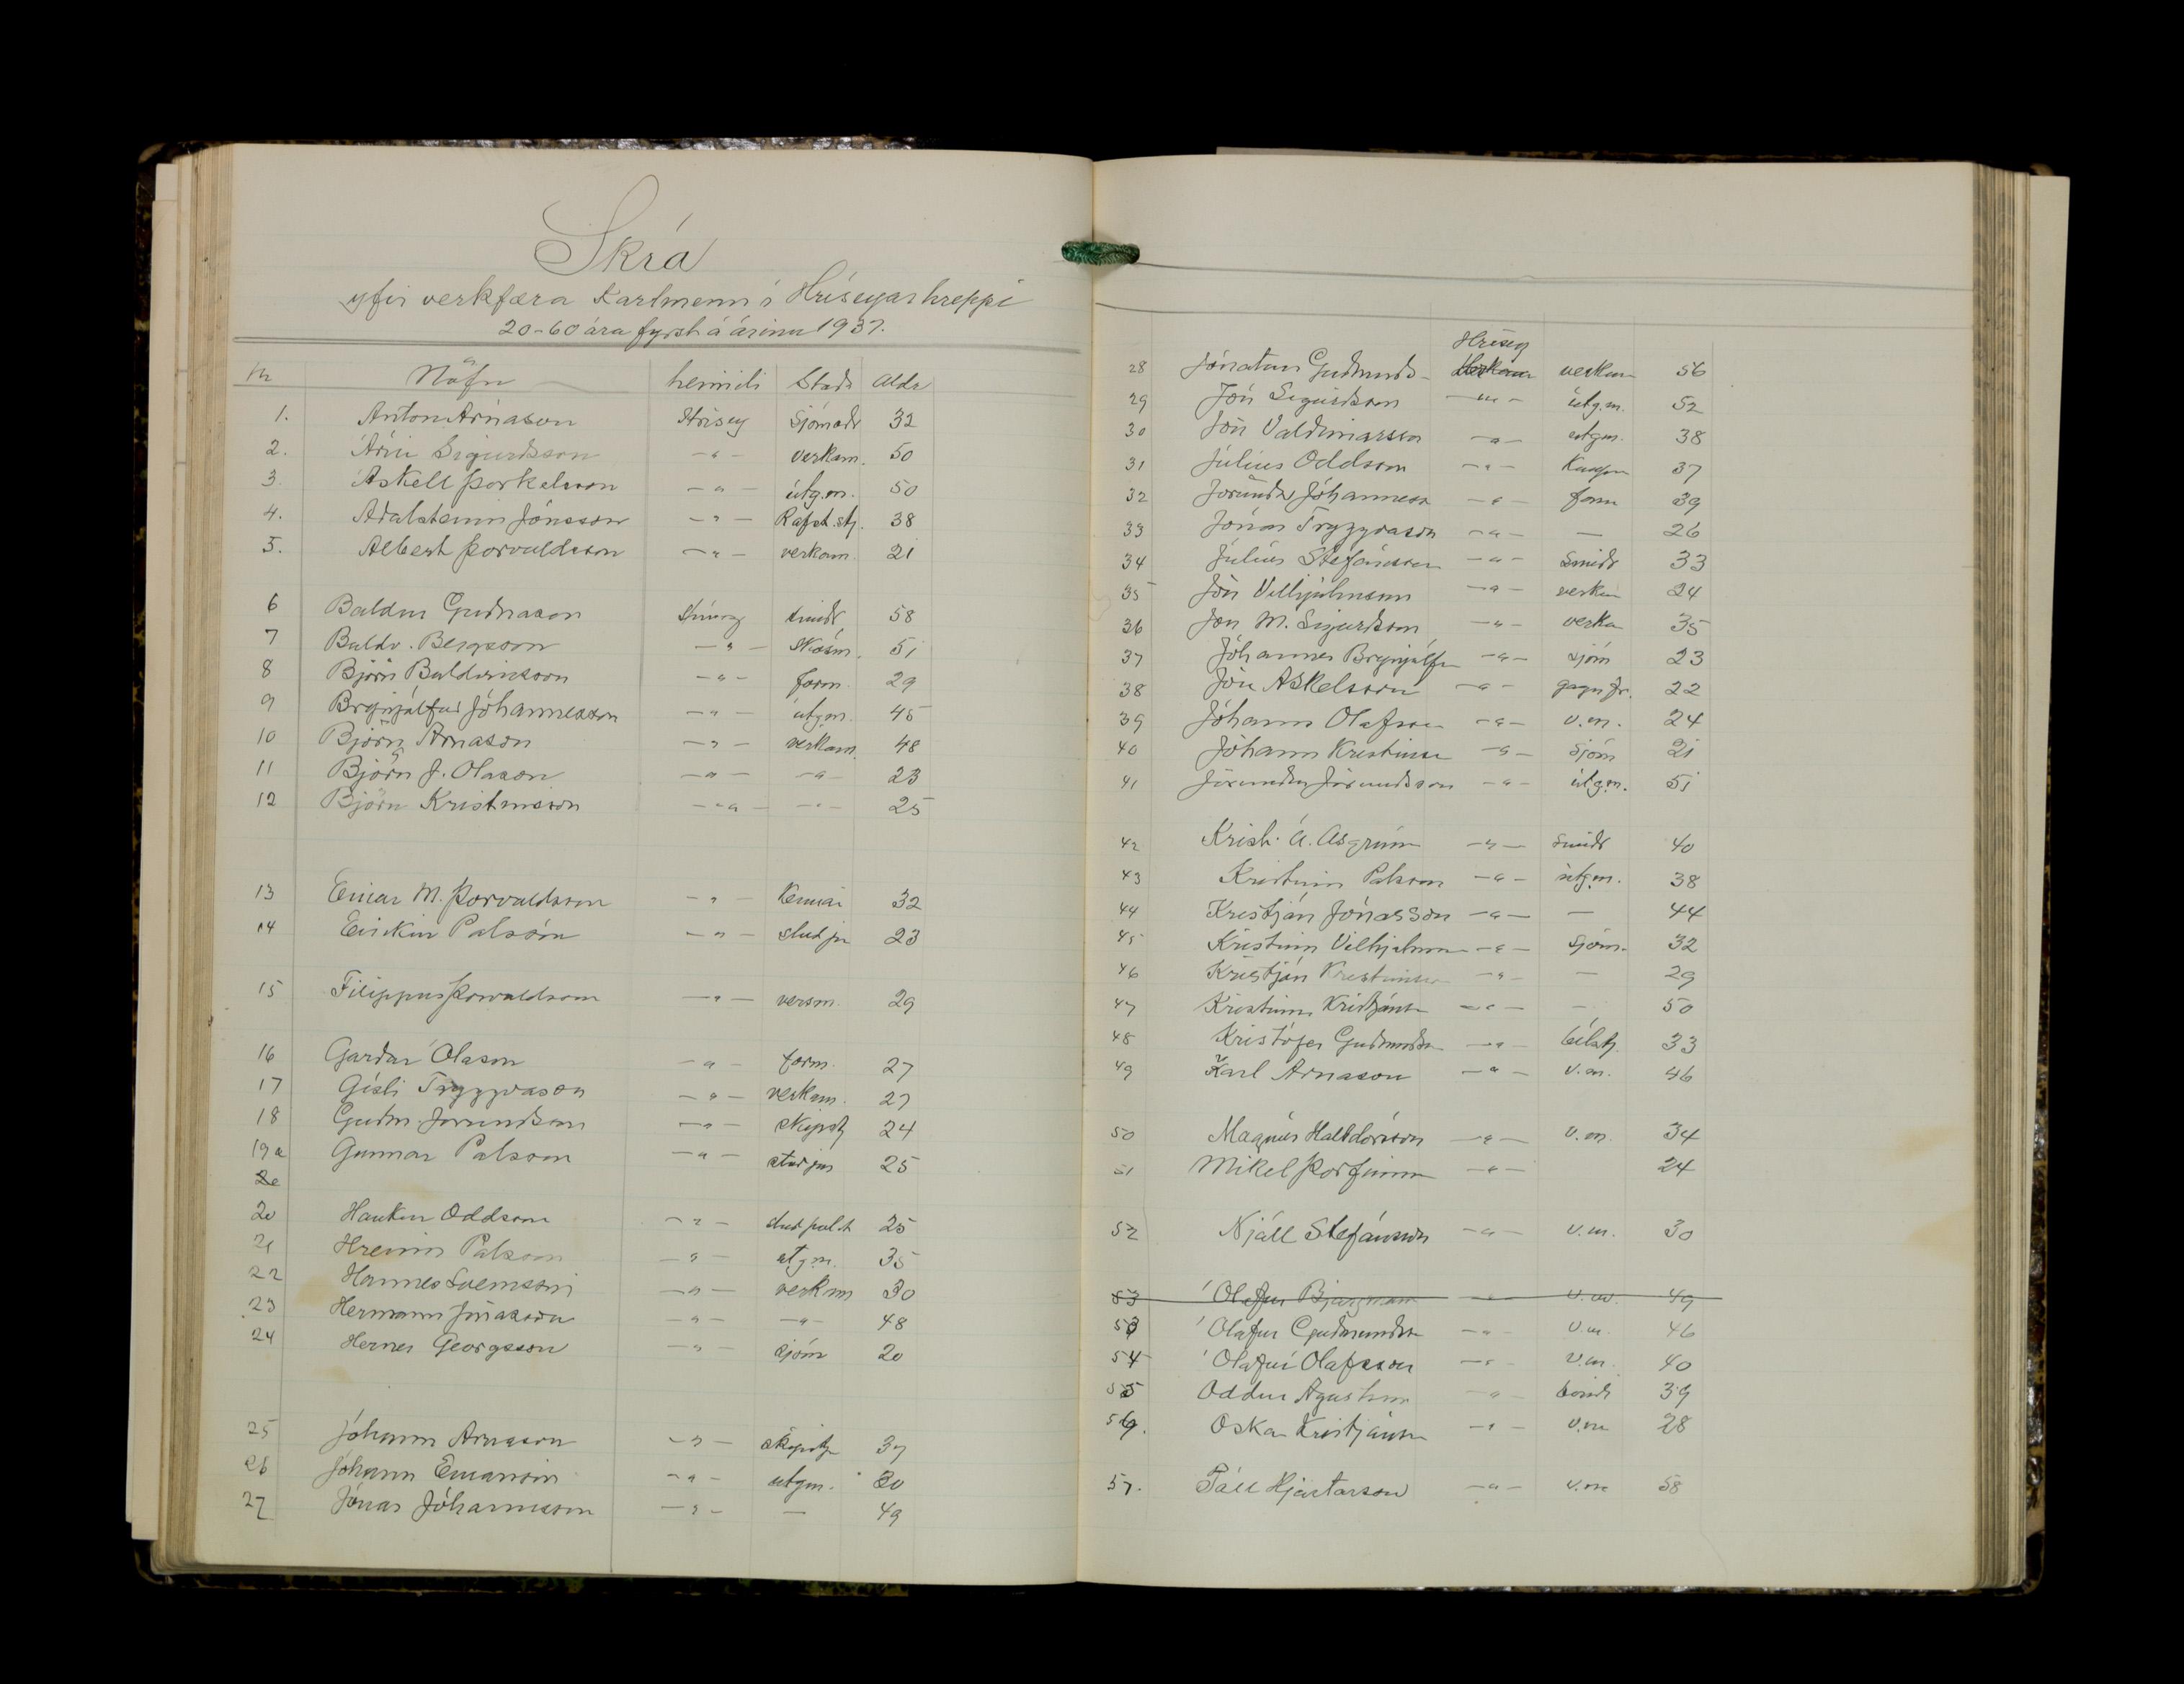 Skrá
yfir verkfæra Karlmenn í Hríseyarhreppi
20-60 ára fyrst á árinu 1937.
Nr Nöfn heimili Stada Aldr
1. Anton Árnason Hrísey Sjómadr 32
2. Árni Sigurdsson -"- Verkam. 50
3. Askell Þorkelsson -"- útg.m. 50
4. Adalsteinn Jónsson -"- Rafst.stj. 38
5. Albert Þorvaldsson -"- verkam. 21
6 Baldur Gudnason Hrísey smidr 58
7 Baldv. Bergsson -"- Skósm. 51
8 Björn Baldvinsson -"- form. 29
9 Brynjólfur Jóhannesson -"- útgm. 45
10 Björn Árnason -"- verkam. 48
11 Björn J. Olason -"- -"- 23
12 Björn Kristinsson -"- -"- 25
13 Einar M. Þorvaldsson -"- Kennari 32
14 Eirikur Palsson -"- stud jur 23
15 Filippus Þorvaldsson -"- versm. 29
16 Gardar Ólason -"- form. 27
17 Gísli Tryggvason -"- verkam. 27
18 Gudm. Jorundsson -"- skipstj 24
19a Gunnar Palsson -"- stud jur 25
20 Haukur Oddsson -"- stud polit 25
21 Hreinn Palsson -"- utg.m. 35
22 Hannes Sveinsson -"- verkam 30
23 Hermann Jónasson -"- -"- 48
24 Hernes Georgsson -"- sjóm 20
25 Jóhann Arnason -"- skipstj 37
26 Jóhann Einarsson -"- utgm. 30
27 Jónas Jóhannsson -"- — 49
28 Jónatan Gudmunds- Hrísey verkam 56
29 Jón Sigurdsson -"- útg.m. 52
30 Jón Valdimarsson -"- utgm. 38
31 Július Oddsson -"- Kaupm 37
32 Jorundr Jóhanness -"- form 39
33 Jónas Tryggvason -"- — 26
34 Július Stefánsson -"- Smidr 33
35 Jón Vilhjálmsson -"- verkm 24
36 Jón M. Sigurdsson -"- verka 35
37 Jóhannes Brynjólfs -"- sjóm 23
38 Jón Askelsson -"- gagnfr. 22
39 Jóhann Olafsson -"- v.m. 24
40 Jóhann Kristinss -"- Sjóm 21
41 Jörundur Jörundsson -"- útg.m. 51
42 Krist. Á. Asgrims -"- smidr 40
43 Kristinn Palsson -"- útg.m. 38
44 Kristján Jónasson -"- — 44
45 Kristinn Vilhjalmss -"- Sjóm. 32
46 Kristján Kristinss -"- — 29
47 Kristinn Kristjánss -"- - 50
48 Kristófer Gudmundss -"- bílstj. 33
49 Karl Arnason -"- v.m. 46
50 Magnús Halldórsson -"- v.m. 34
51 Mikel Þorfinns -"- 24
52 Njáll Stefánsson -"- v.m. 30
53 Ólafur Bjargmann -"- v.m. 49
53 Ólafur Gudmundss -"- v.m. 46
54 Ólafur Ólafsson -"- v.m. 40
55 Oddur Agustsson -"- bóndi 39
56. Oskar Kristjánss -"- v.m 28
57. Páll Hjartarson -"- v.m 58